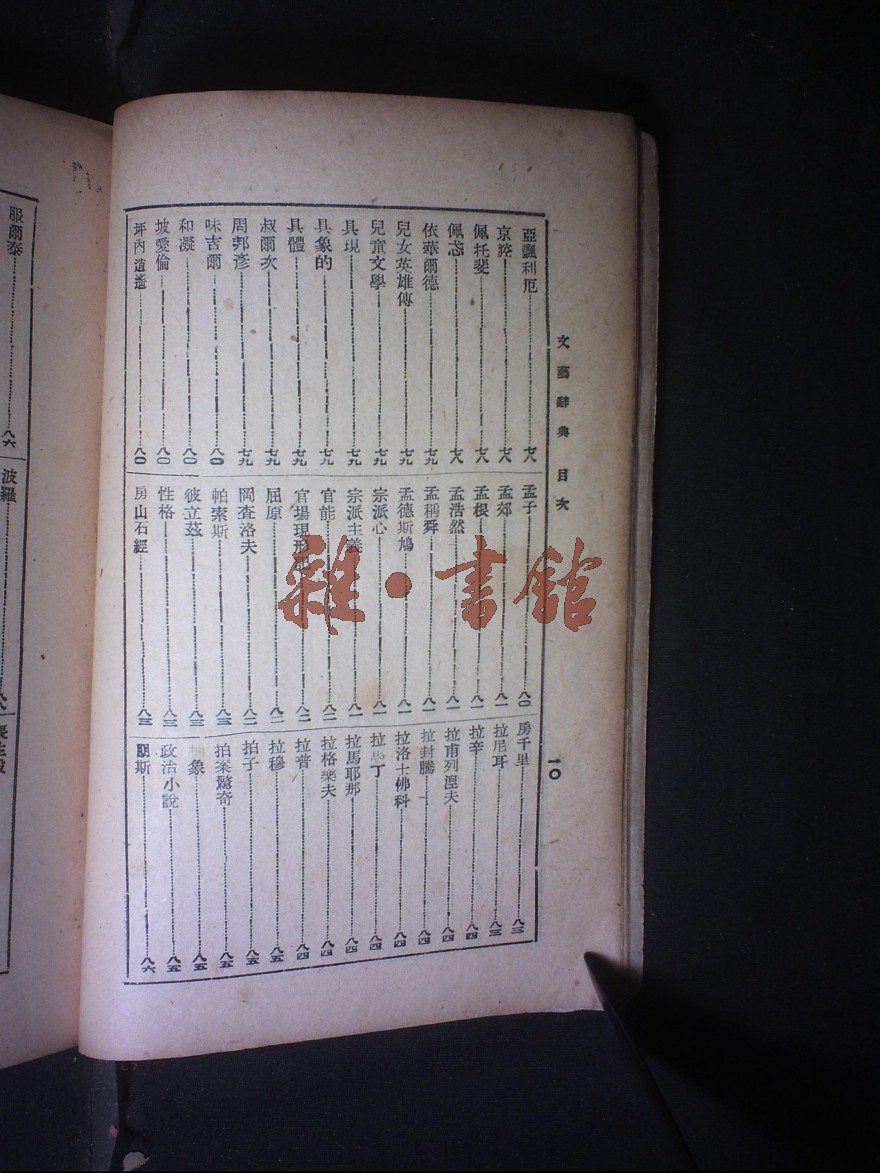 文藝辭典 目次
一〇
亞飄利厄……七八
京腔……七八
佩托斐……七八
佩忒……七八
依華爾德……七九
兒女英雄傳……七九
兒童文學……七九
具現……七九
具象的……七九
具體……七九
叔爾次……七九
周邦彥……七九
味吉爾……八〇
和凝……八〇
坡愛倫……八〇
坪內逍遙……八〇
孟子……八〇
孟郊……八一
孟根……八一
孟浩然……八一
孟稱舜……八一
孟德斯鳩……八一
宗派心……八一
宗派主義……八一
官能……八二
官場現形記……八二
屈原……八二
岡查洛夫……八二
帕索斯……八三
彼立茲……八三
性格……八三
房山石經……八三
房千里……八三
拉尼耳……八三
拉辛……八四
拉甫列湼夫……八四
拉封騰……八四
拉洛士佛科……八四
拉馬丁……八四
拉馬耶那……八四
拉格樂夫……八四
拉普……八四
拉穆……八五
拍子……八五
拍案驚奇……八五
抽象……八五
政治小說……八五
朋斯……八六
服爾泰……八六
波羅
雜·書館